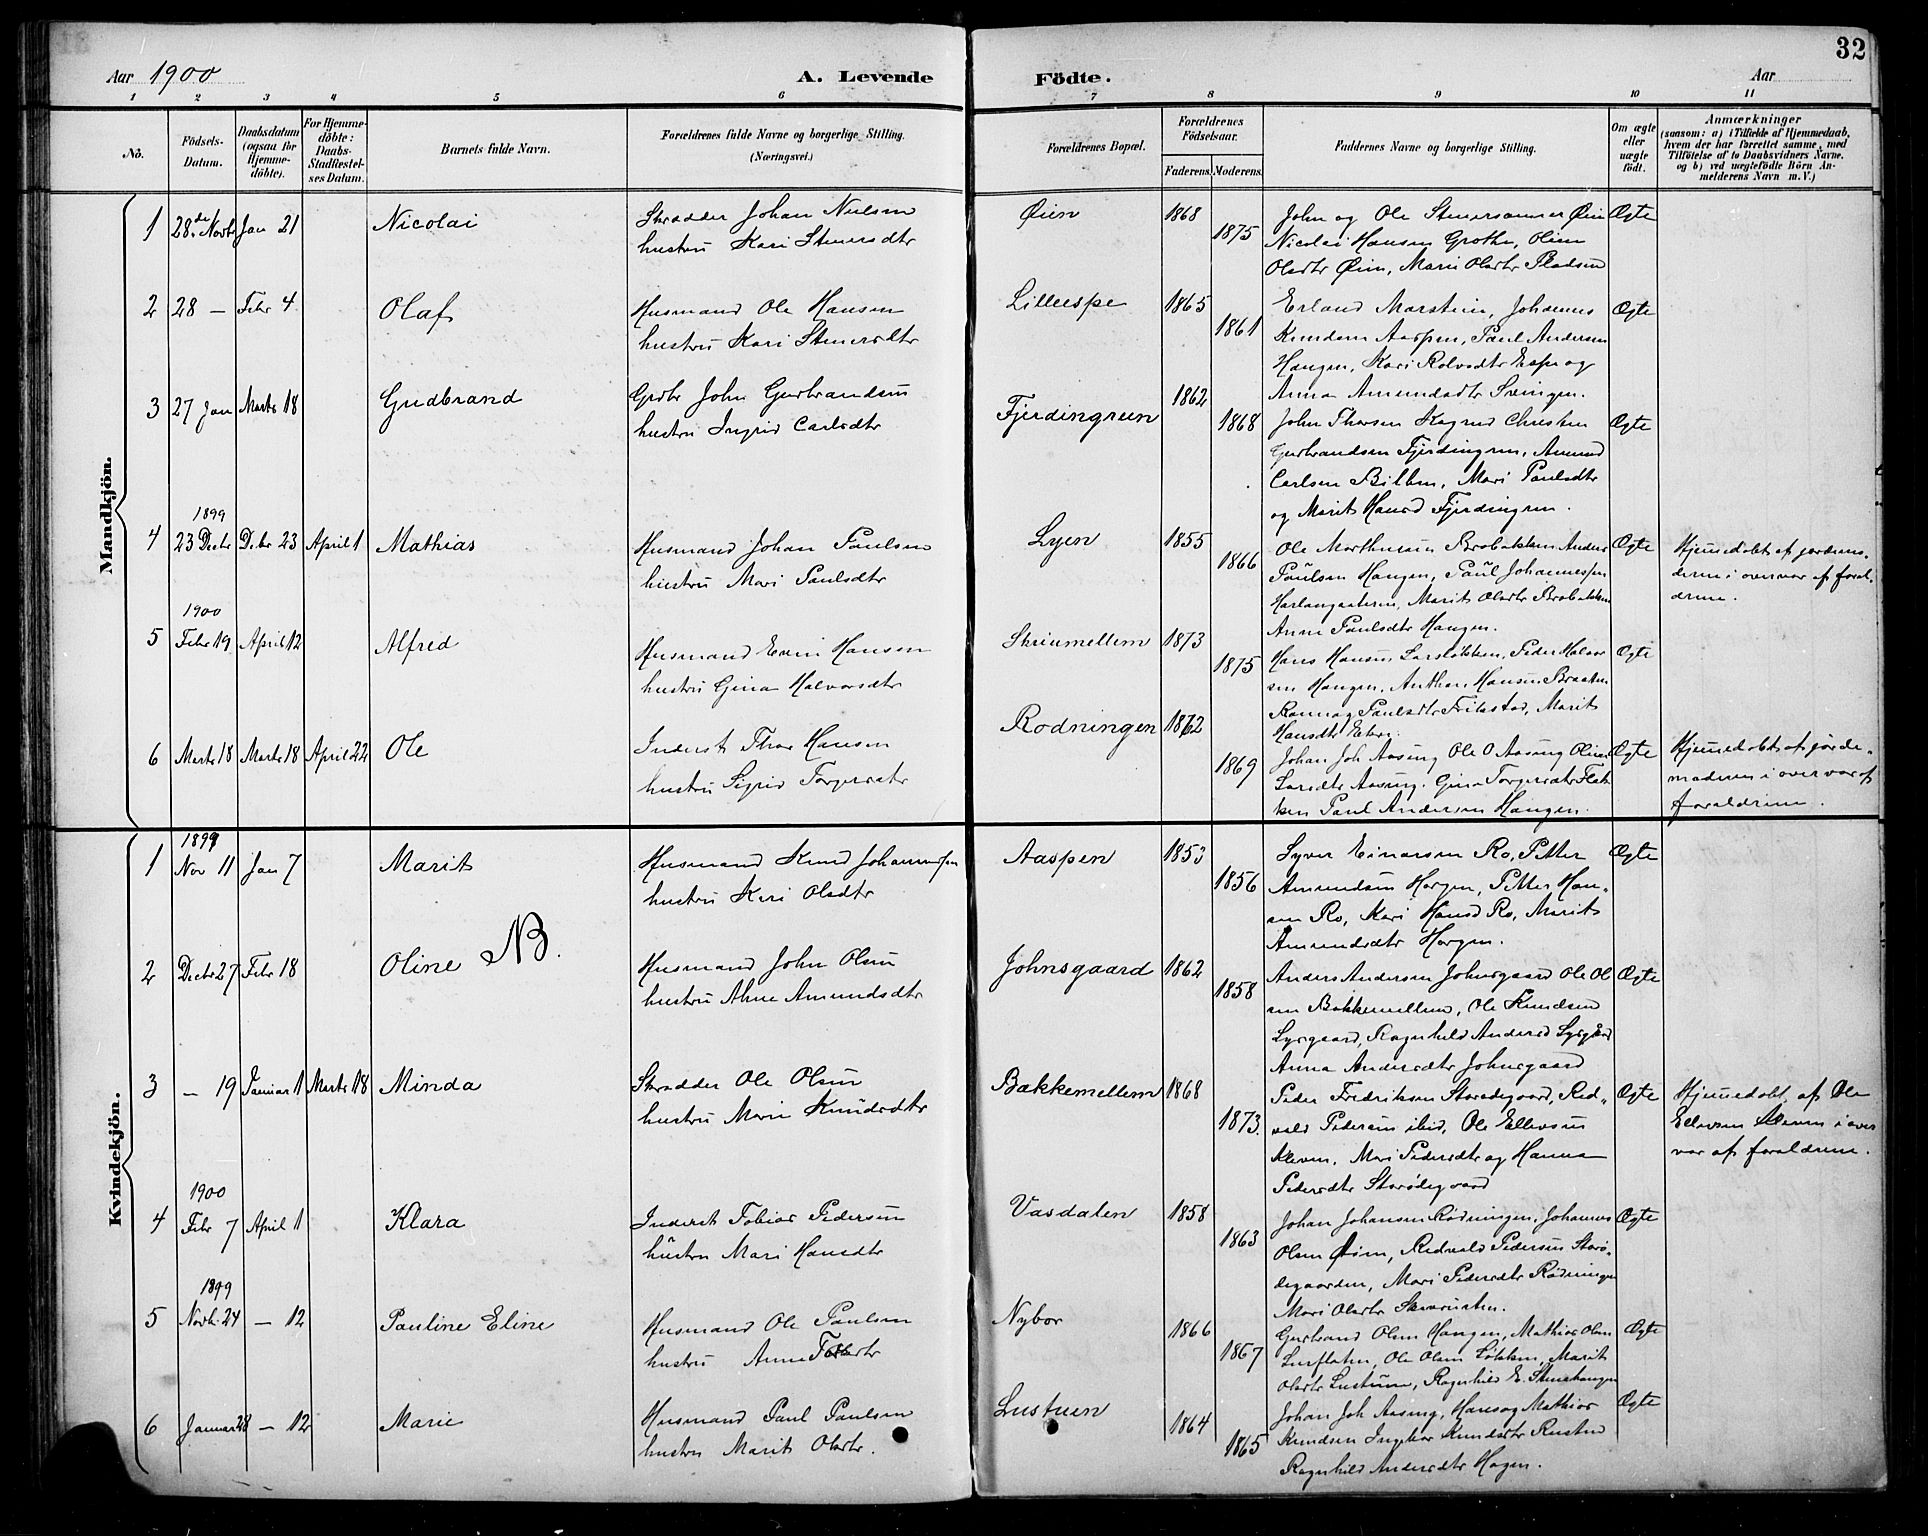 Aar 1900
A. Levende Fødte.
Aar
32
1 2 3 4 5 6 7 8 9 10 11
No.
Fødsels-Datum.
Daabsdatum (ogsaa for Hjemme-døbte).
For Hjemme-døbte: Daabs-Stadfæstel-ses Datum.
Barnets fulde Navn.
Forældrenes fulde Navne og borgerlige Stilling. (Næringsvei.)
Forældrenes Bopæl.
Forældrenes Fødselsaar.
Faderens. Moderens.
Faddernes Navne og borgerlige Stilling.
Om ægte eller uægte født.
Anmærkninger
(saasom: a) i Tilfælde af Hjemmedaab, hvem der har forrettet samme, med Tilføielse af to Daabsvidners Navne, og b) ved uægtefødte Börn An-melderens Navn m. V.)
Mandkjön.
1 28de Novb. Jan 21 Nicolai Skrædder Johan Nielsen
hustru Kari Steinersdtr
Øien 1868 1875
John og Ole Øien Ægte
Nicolai Hansen Grothe, Oline
Olsdtr Øien, Marie Olsdtr Pladsen
2 28 — Febr 4 Olaf Husmand Ole Hansen
hustru Kari Steinersdtr
Lilleespe 1865 1861
Erland Marstein, Johannes Ægte
Knudsen Aaspen, Paul Andersen
Haugen, Kari Rolvsdtr Espe og
Anna Amundsdtr Svingen.
3 27 Jan Marts 18 Gudbrand Grdbr John Gudbrandsen
hustru Ingrid Carlsdtr
Fjerdingreen 1862 1868
John Thorsen Kogrud Christen Ægte
Gudbrandsen Fjerdingren, Amund
Carlsen Billen, Mari Paulsdtr
og Marit Hansd Fjerdingren.
1899
4 23 Decbr Debr 23 April 1 Mathias Husmand Johan Paulsen
hustru Mari Paulsdtr
Lyen 1855 1866
Ole Morthensen Brobakken Anders Ægte
Paulsen Haugen, Paul Johannessen
Marit Olsdtr Brobakken
Anne Paulsdtr Haugen.
Hjemmedøbt af jordemo-
deren i overvær af foræl-
drene.
1900
5 Febr 19 April 12 Alfred Husmand Even Hansen
hustru Gina Halvorsdtr
Skriumellem 1873 1875
Hans Hansen Larsløkken, Peder Halvor Ægte
sen Haugen, Anthon Hansen Braaten
Ronnog Paulsdtr Marit
Hansdtr
6 Marts 18 Marts 18 April 22 Ole Inderst Thor Hansen
hustru Sigrid Torgersdtr
Rodningen 1862 1869
Johan Joh Aasung Ole O Aasung Oline Ægte
Larsdtr Aasung. Gina Torgersdtr
Paul Andersen Haugen.
Hjemmedøbt af jorde-
moderen i overvær af
forældrene.
Kvindekjön.
1899
1 Nov 11 Jan 7 Marit Husmand Knud Johannessen
hustru Kari Olsdtr
Aaspen 1853 1856
Syver Einarsen Ro, Petter Ægte
Amundsen Horgen, Petter Han-
sen Ro, Kari Hansd Ro, Marit
Amundsdtr Horgen.
2 Decbr 27 Febr 18 Oline NB. Husmand John Olsen
hustru Ahne Amundsdtr
Johnsgaard 1862 1858
Anders Andersen Johnsgaard Ole Ol Ægte
sen Bakkemellem, Ole Knudsen
Lysgaard, Ragnhild Andersd Lysgård
Anna Andersdtr Johnsgaard
3 — 19 Januar 1 Marts 18 Minda Skrædder Ole Olsen
hustru Marie Knudsdtr
Bakkemellem 1868 1873.
Peder Fredriksen Storødegaard, Red- Ægte
vald Pedersen ibid, Ole Ellevsen
Kleven, Mari Pedersdtr og Hanna
Pedersdtr Storødegaard
Hjemmedøbt af Ole
Ellevsen Kleven i over
vær af forældrene.
1900
4 Febr 7 April 1 Klara Inderst Tobias Pedersen
hustru Mari Hansdtr
Vasdalen 1858 1863
Johan Johansen Rødningen, Johannes Ægte
Olsen Øien, Redvald Pedersen Storø-
degaarden, Mari Pedersdtr Rødningen
Mari Olsdtr
1899
5 Novb. 24 — 12 Pauline Eline Husmand Ole Paulsen
hustru Anne
Nybor 1866 1867
Gudbrand Olsen Haugen, Mathias Olsen Ægte
Ole Olsen Løkken, Marit
Olsdtr Lustuen, Ragnhild E. Stenehaugen
6 Januar 28 — 12 Marie Husmand Paul Paulsen
hustru Marit Olsdtr.
Lustuen 1864 1865
Johan Joh Aasung, Hans og Mathias Ægte
Knudsen Ingebor Knudsdtr Rusten
Ragnhild Andersdtr Hagen.